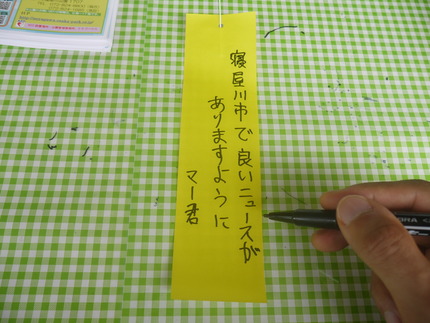 寝屋川市で良いニュースが
ありますように
マー君